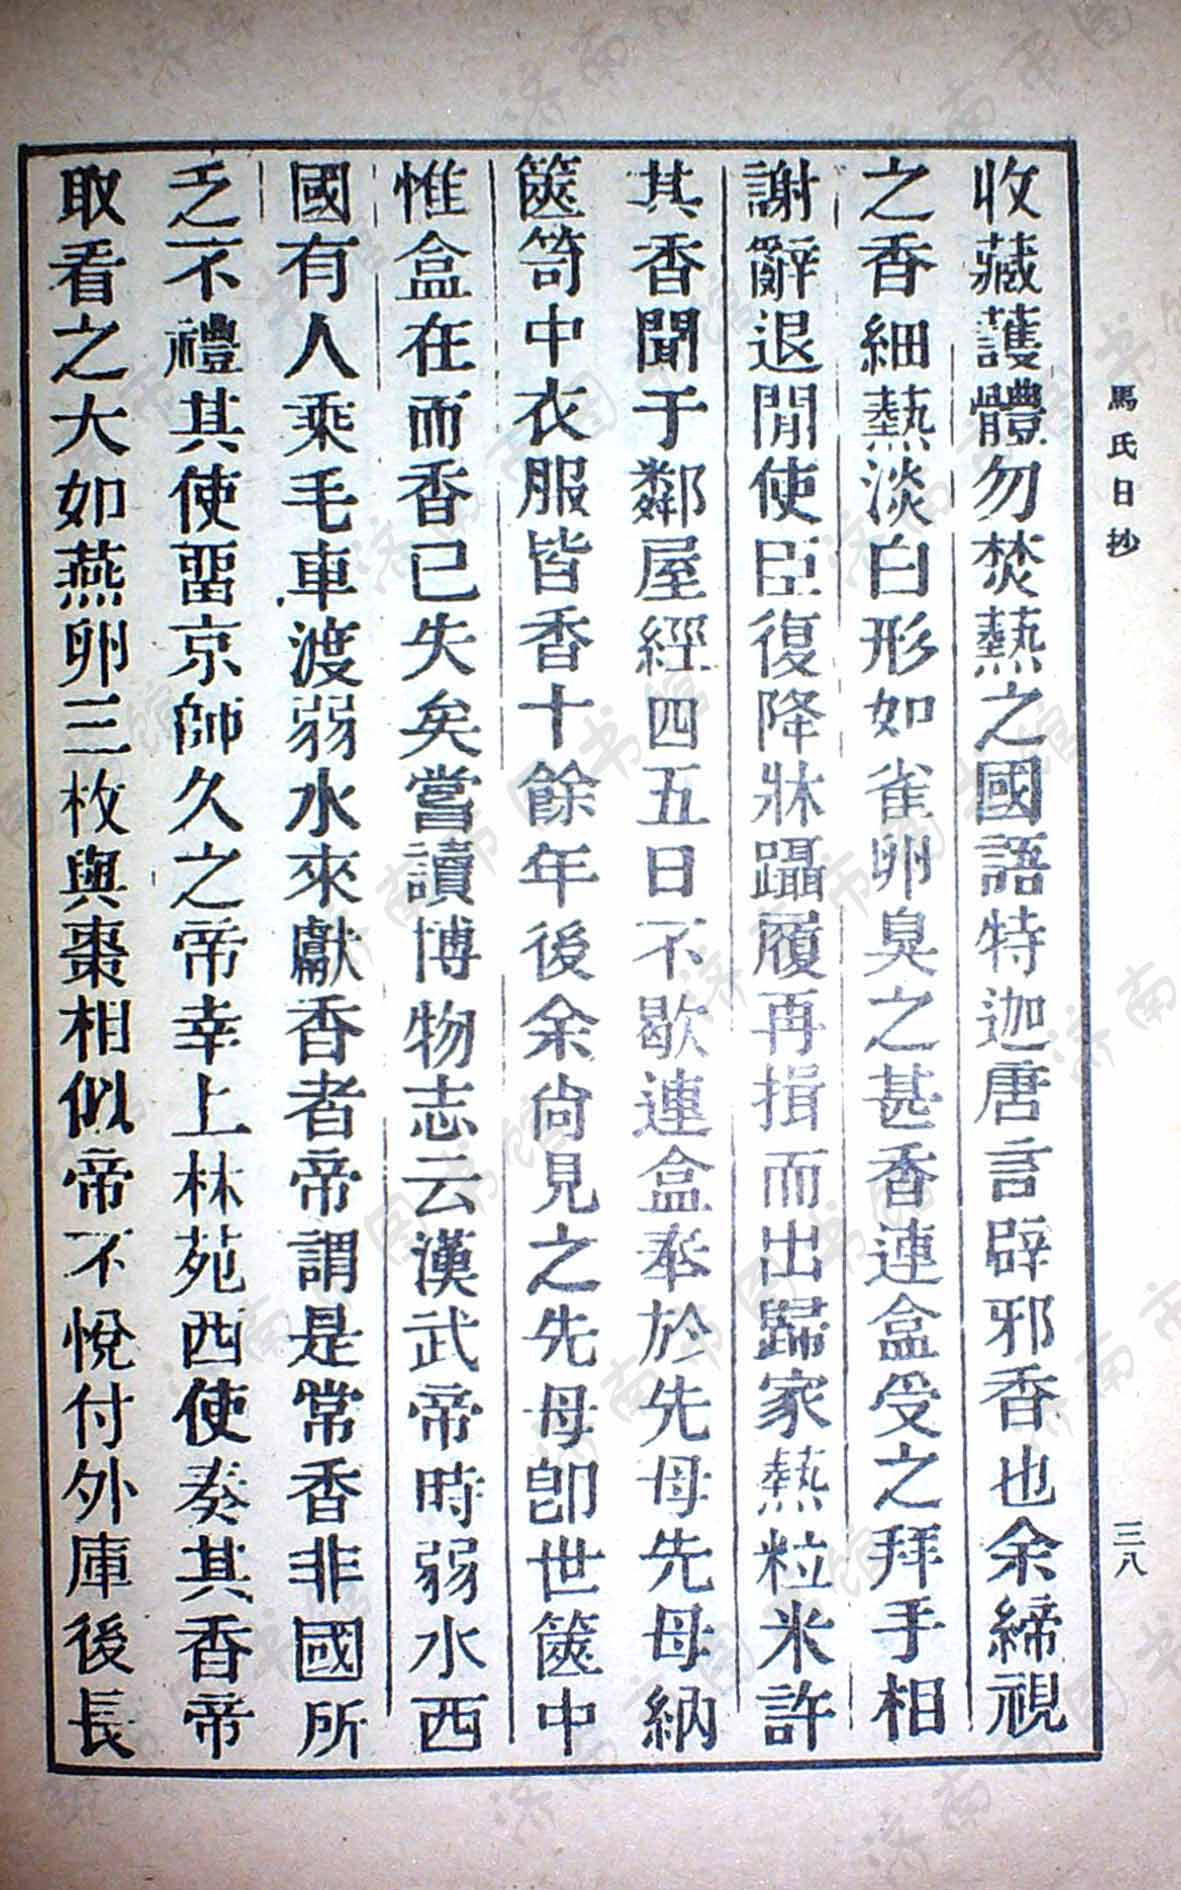 馬氏日抄
三八
收藏護體勿焚爇之國語特迦唐言辟邪香也余締視
之香細爇淡白形如雀卵臭之甚香連盒受之拜手相
謝辭退閒使臣復降牀躡履再揖而出歸家爇粒米許
其香聞于鄰屋經四五日不歇連盒奉於先母先母納
篋笥中衣服皆香十餘年後余尙見之先母卽世篋中
惟盒在而香已失矣嘗讀博物志云漢武帝時弱水西
國有人乘毛車渡弱水來獻香者帝謂是常香非國所
乏不禮其使畱京師久之帝幸上林苑西使奏其香帝
取看之大如燕卵三枚與棗相似帝不悅付外庫後長